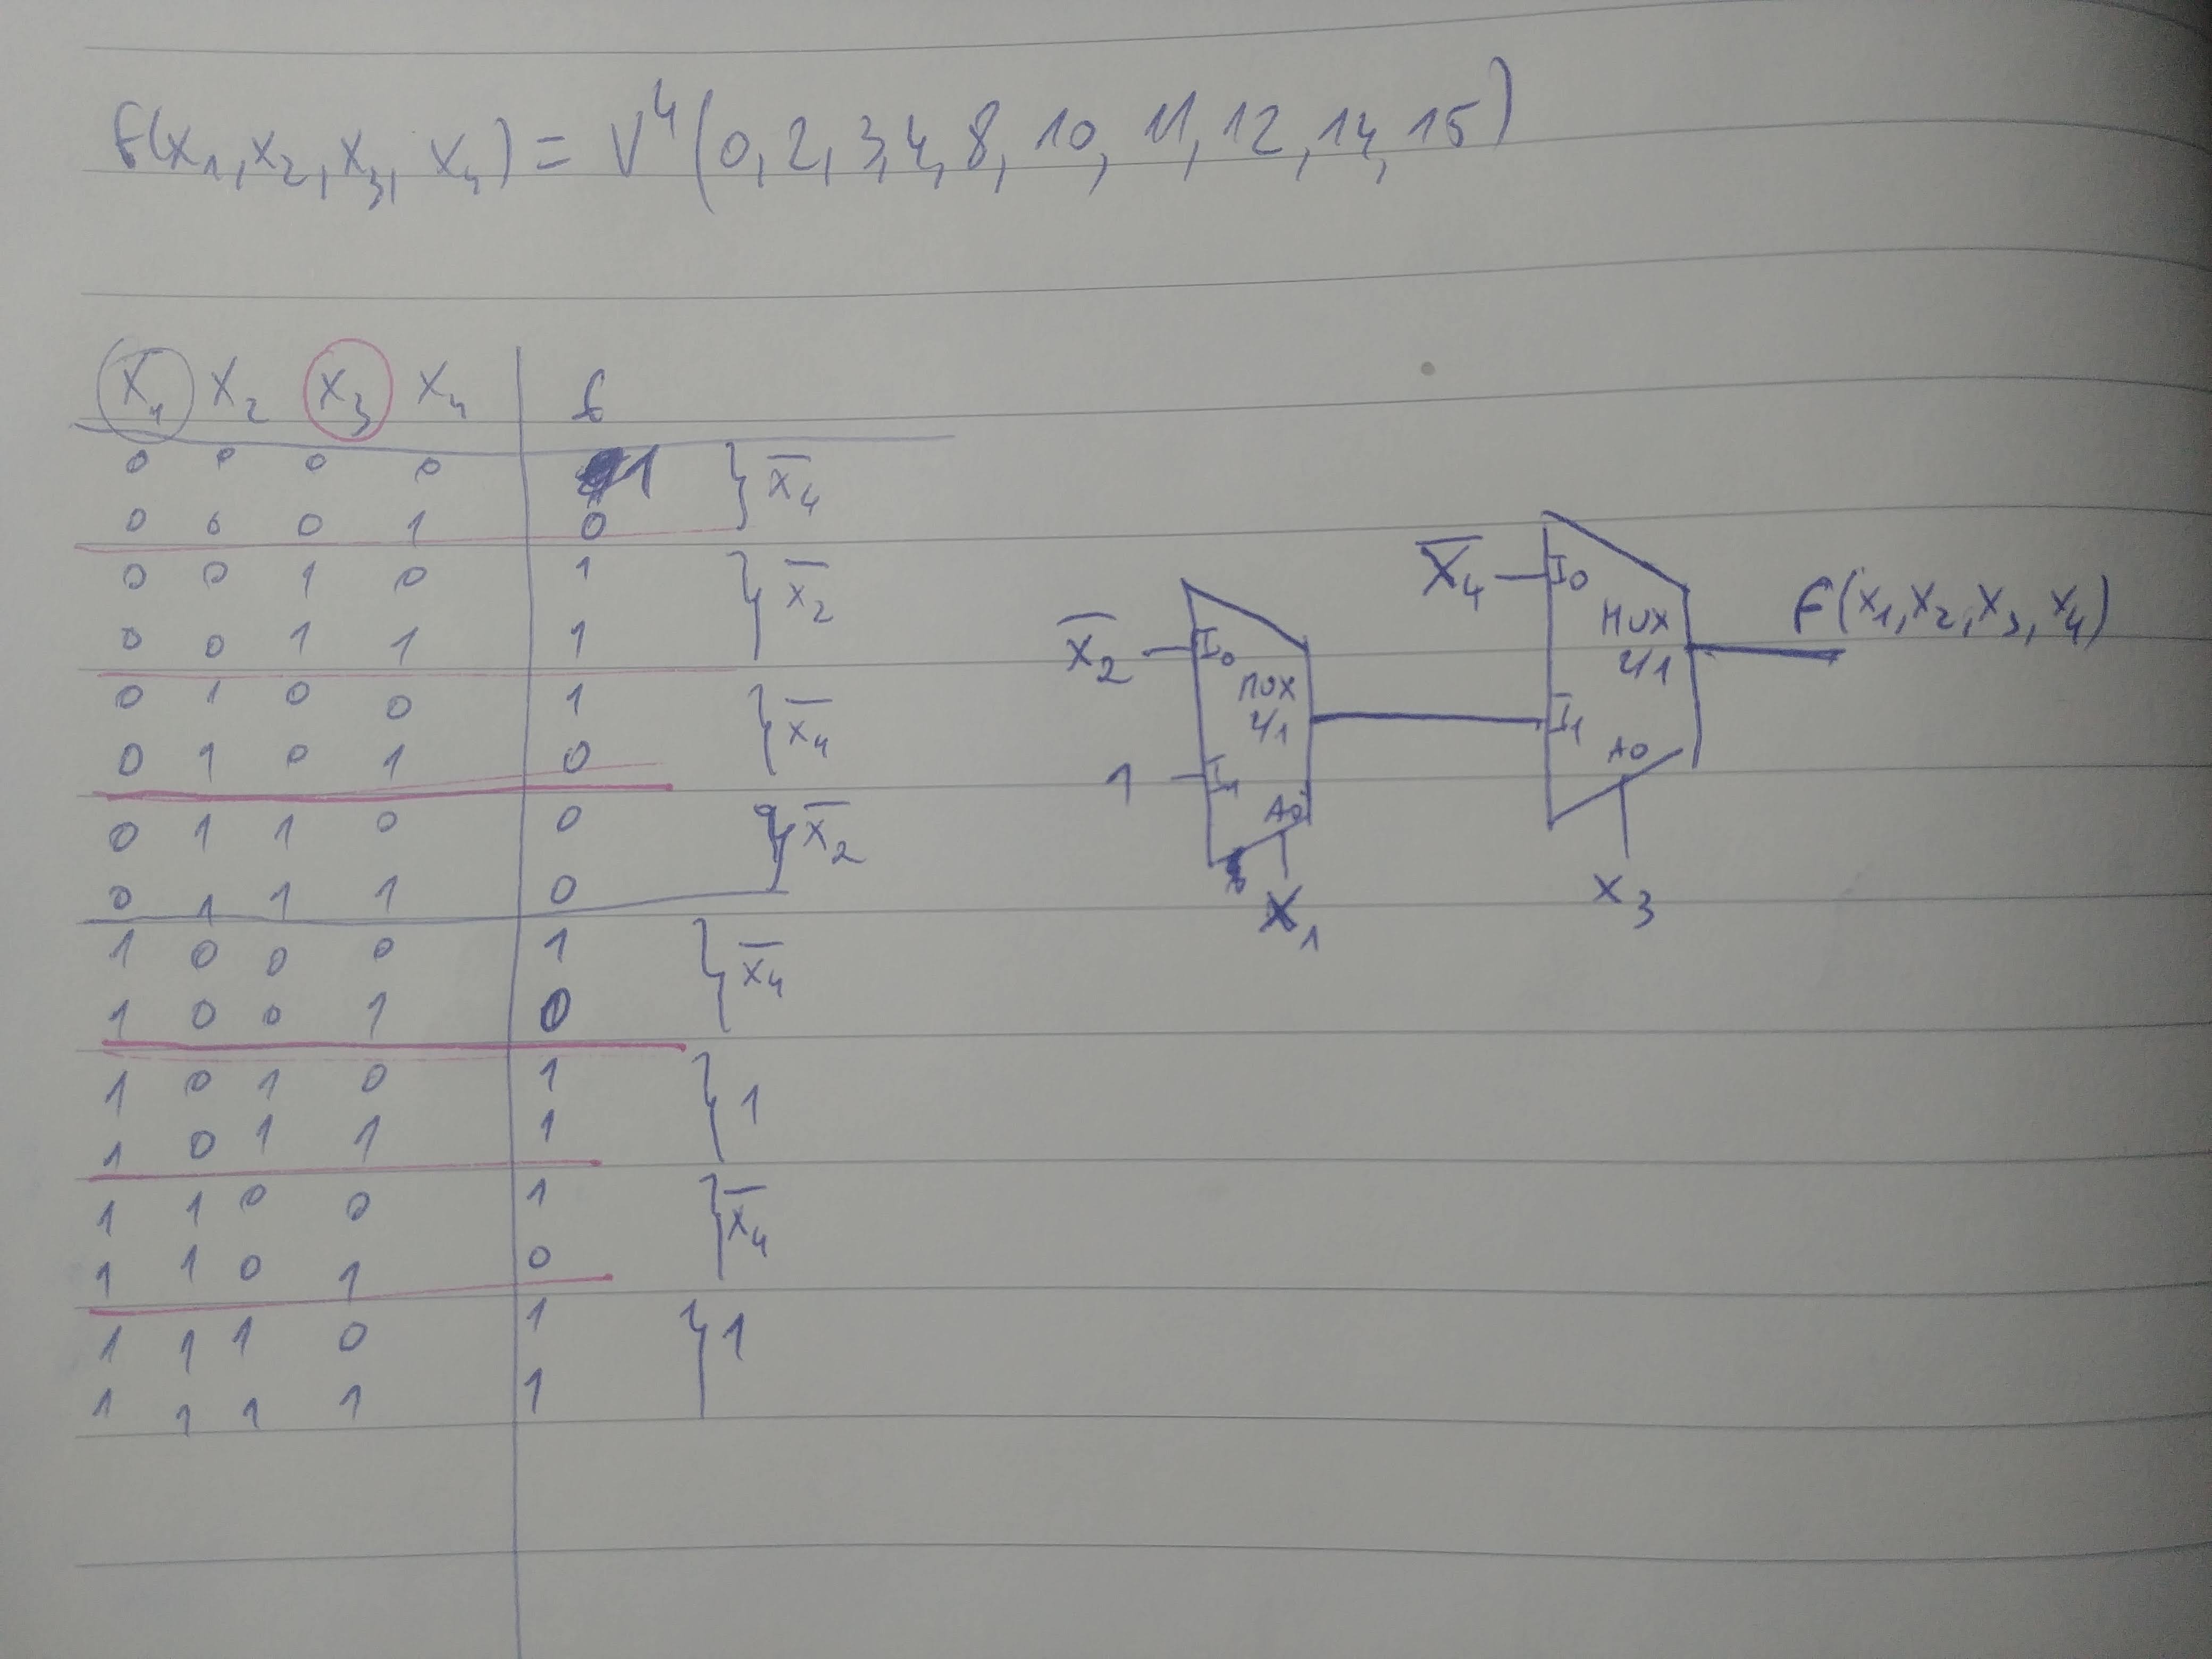 f(x₁, x₂, x₃, x₄) = V⁴(0, 2, 3, 4, 8, 10, 11, 12, 14, 15)
x₁ x₂ x₃ x₄ f
0 0 0 0 1 } x̅₄
0 0 0 1 0
0 0 1 0 1 } x̅₂
0 0 1 1 1
0 1 0 0 1 } x̅₄
0 1 0 1 0
0 1 1 0 0 } x̅₂
0 1 1 1 0
1 0 0 0 1 } x̅₄
1 0 0 1 0
1 0 1 0 1 } 1
1 0 1 1 1
1 1 0 0 1 } x̅₄
1 1 0 1 0
1 1 1 0 1 } 1
1 1 1 1 1
x̅₂ I₀
MUX
2/1
1 I₁
A0
x₁
x̅₄ I₀
MUX
2/1
I₁
A0
x₃
f(x₁, x₂, x₃, x₄)